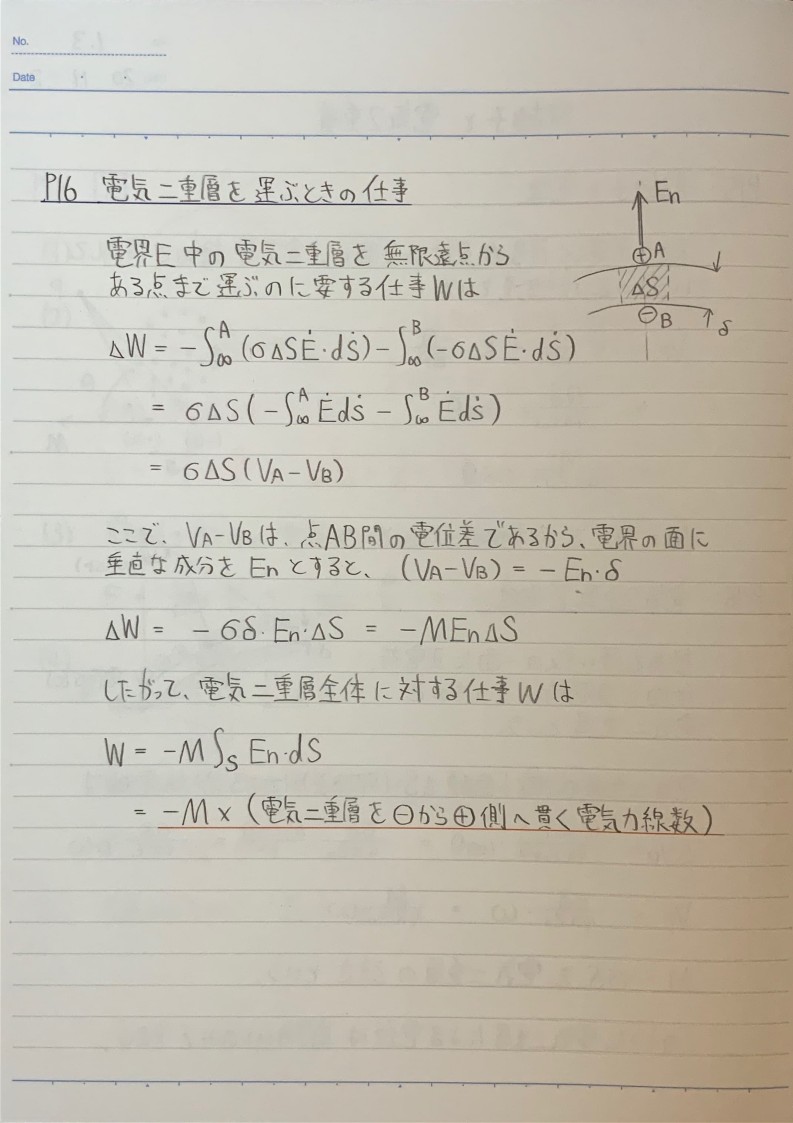 No.
Date
P16 電気二重層を運ぶときの仕事
En
電界E中の電気二重層を無限遠点から
⊕A
ある点まで運ぶのに要する仕事Wは
ΔS
⊖B
δ
ΔW = -∫∞^A (σΔSĖ・dṡ) - ∫∞^B (-σΔSĖ・dṡ)
= σΔS(-∫∞^A Ėdṡ - ∫∞^B Ėdṡ)
= σΔS(VA-VB)
ここで、VA-VBは、点AB間の電位差であるから、電界の面に
垂直な成分をEnとすると、(VA-VB) = -En・δ
ΔW = -σδ・En・ΔS = -MEnΔS
したがって、電気二重層全体に対する仕事Wは
W = -M∫S En・dS
= -M×(電気二重層を⊖から⊕側へ貫く電気力線数)